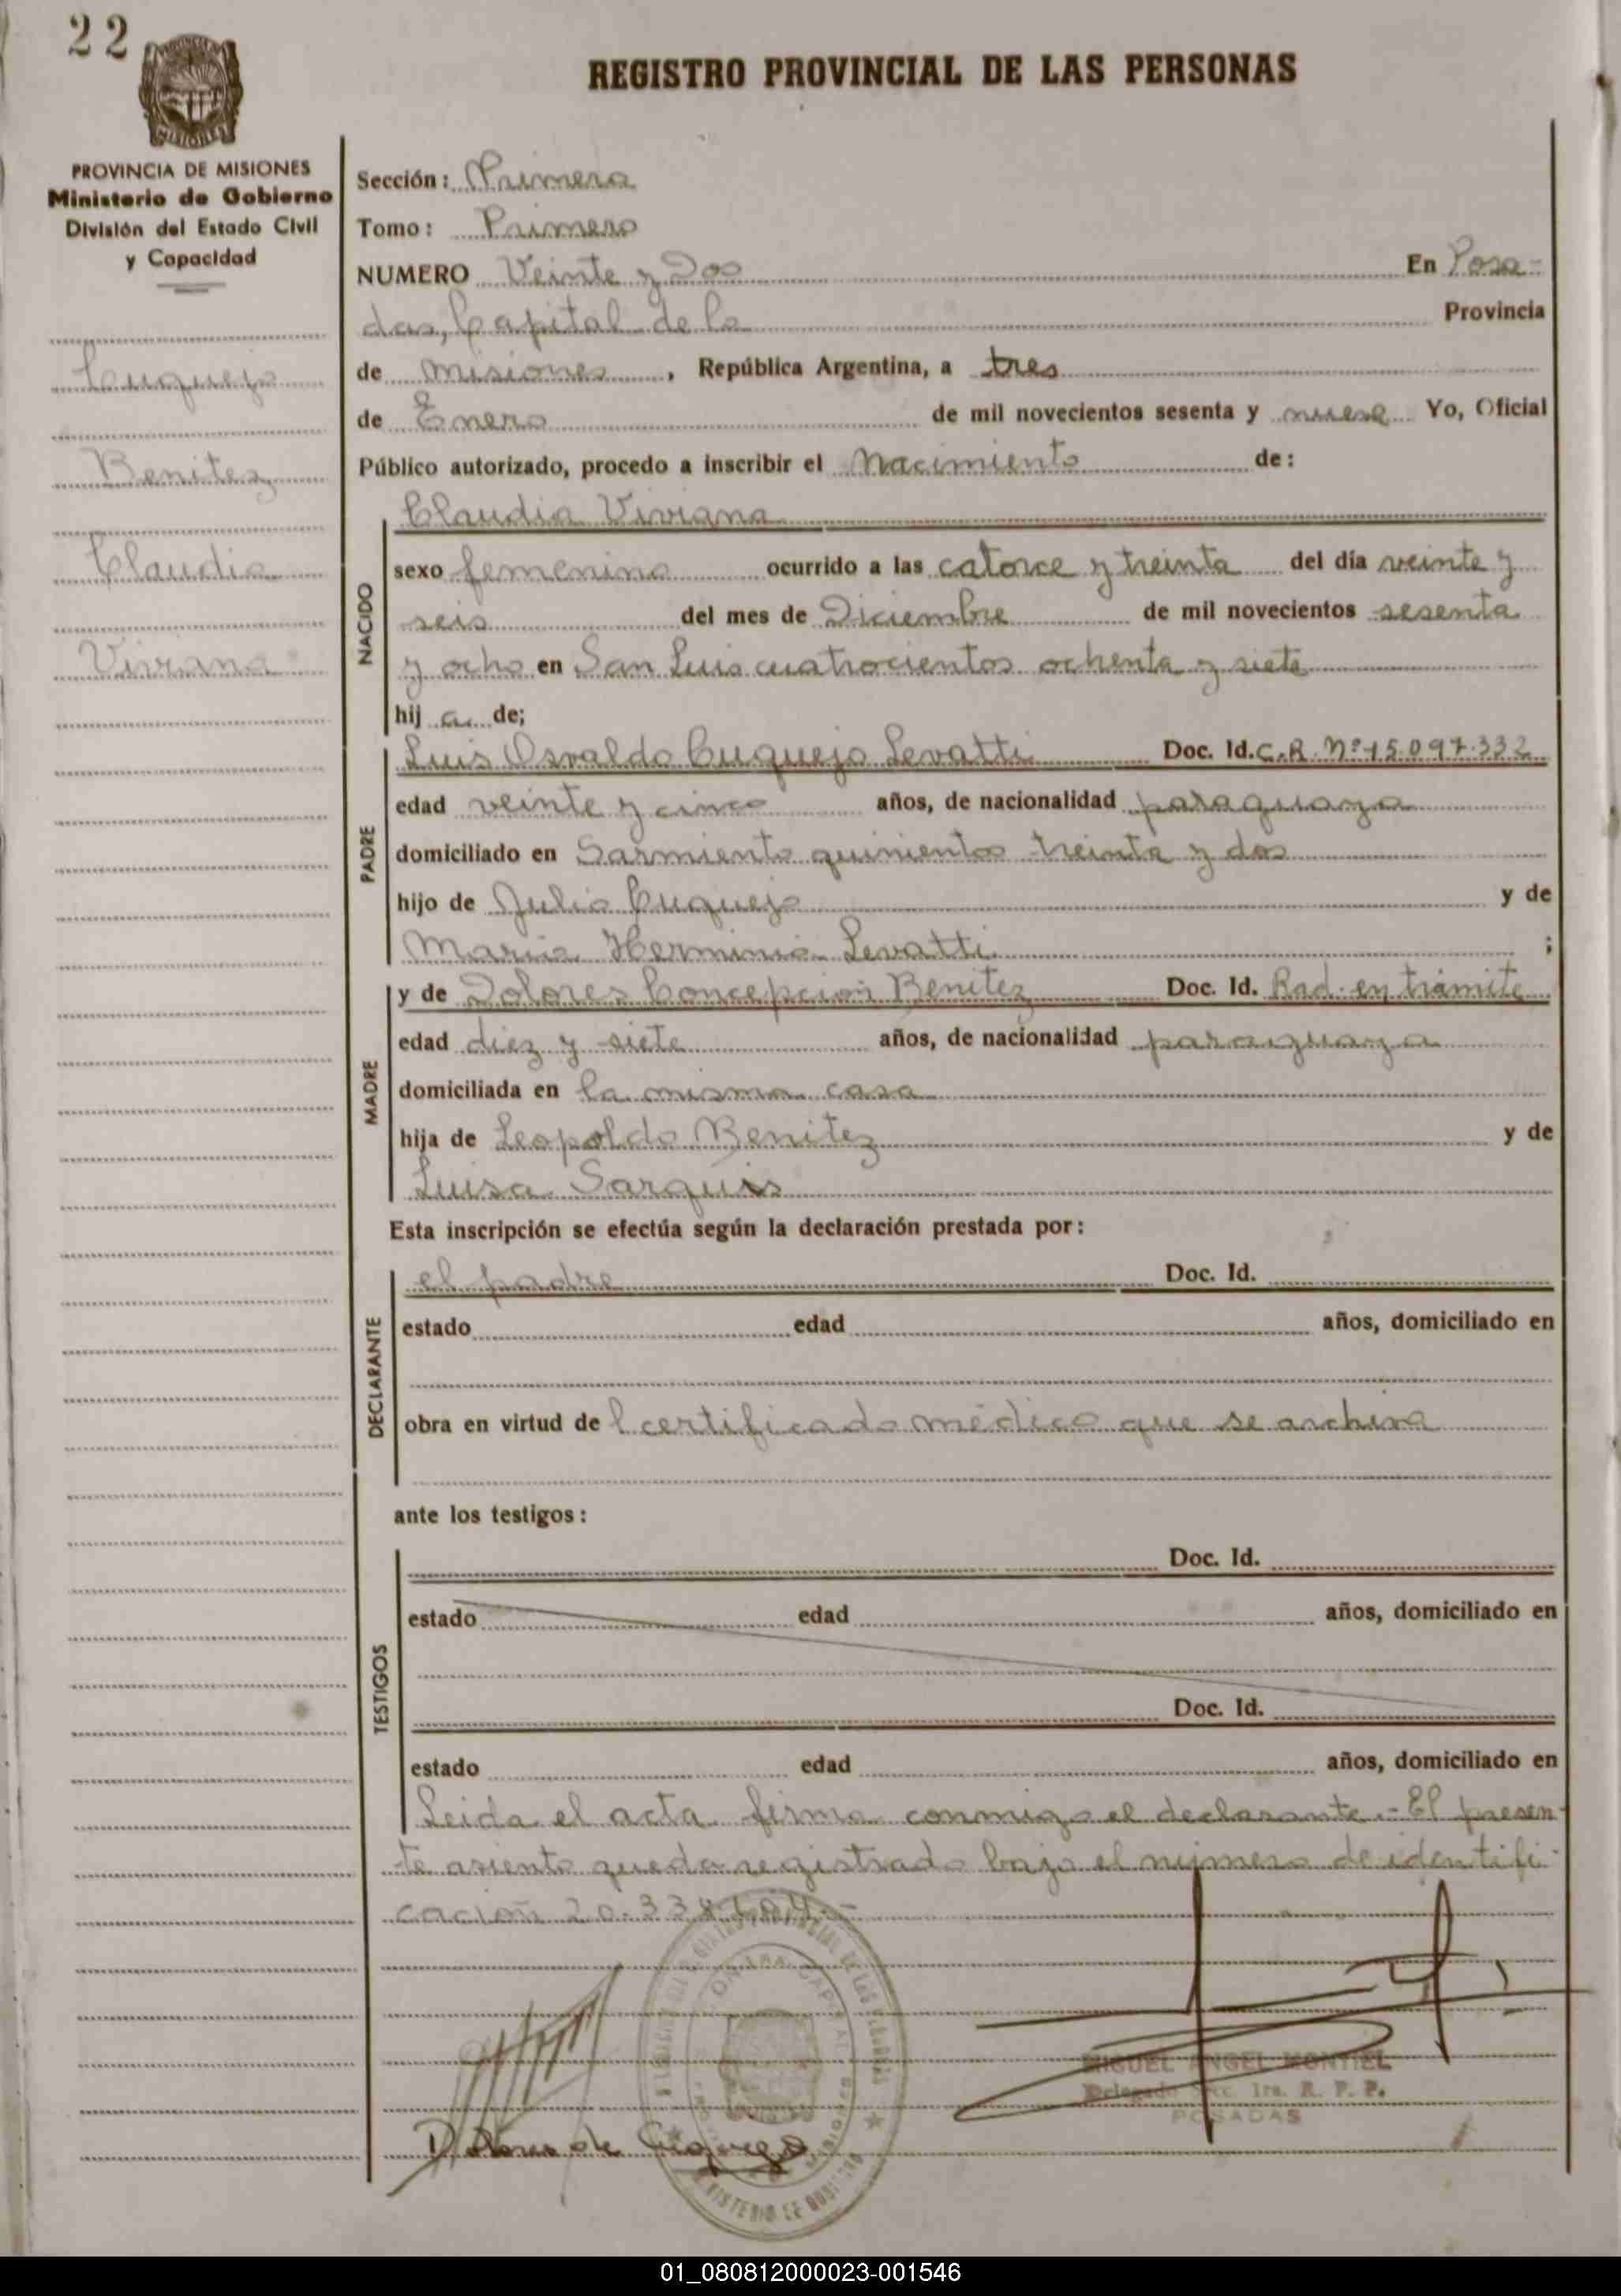 22
REGISTRO PROVINCIAL DE LAS PERSONAS
MISIONES
PROVINCIA DE MISIONES
Ministerio de Gobierno
División del Estado Civil
y Capacidad
Cuquejo
Benitez
Claudia
Viviana
Sección: Primera
Tomo: Primero
NUMERO Veinte y Dos En Posa-
das, Capital de la Provincia
de Misiones, República Argentina, a tres
de Enero de mil novecientos sesenta y nueve Yo, Oficial
Público autorizado, procedo a inscribir el Nacimiento de:
NACIDO
Claudia Viviana
sexo femenino ocurrido a las catorce y treinta del día veinte y
seis del mes de Diciembre de mil novecientos sesenta
y ocho en San Luis cuatrocientos ochenta y siete
hij a de;
PADRE
Luis Osvaldo Cuquejo Levatti Doc. Id. C.R. Nº 15.097.332
edad veinte y cinco años, de nacionalidad paraguaya
domiciliado en Sarmiento quinientos treinta y dos
hijo de Julio Cuquejo y de
Maria Herminia Levatti ;
MADRE
y de Dolores Concepción Benitez Doc. Id. Rad. en trámite
edad diez y siete años, de nacionalidad paraguaya
domiciliada en la misma casa
hija de Leopoldo Benitez y de
Luisa Sarquis
Esta inscripción se efectúa según la declaración prestada por:
DECLARANTE
el padre Doc. Id.
estado edad años, domiciliado en
obra en virtud de l certificado médico que se archiva
ante los testigos:
TESTIGOS
Doc. Id.
estado edad años, domiciliado en
Doc. Id.
estado edad años, domiciliado en
Leida el acta firma conmigo el declarante.- El presen-
te asiento queda registrado bajo el número de identifi-
cación 20.338
MIGUEL ANGEL MONTIEL
Delegado Secc. 1ra. R. P. P.
POSADAS
Dolores de Cuquejo
MINISTERIO DE GOBIERNO
01_080812000023-001546